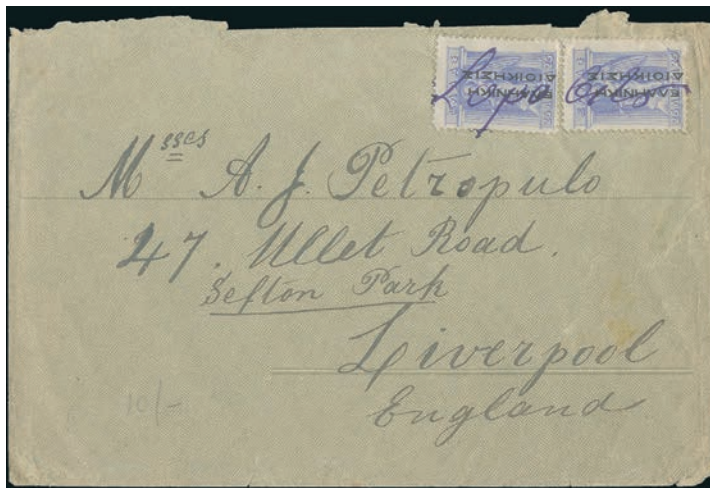 ΕΛΛΗΝΙΚΗ
ΔΙΟΙΚΗΣΙΣ
ΕΛΛΗΝΙΚΗ
ΔΙΟΙΚΗΣΙΣ
Msses A. J. Petropulo
47. Ullet Road.
Sefton Park
Liverpool
England
10/-